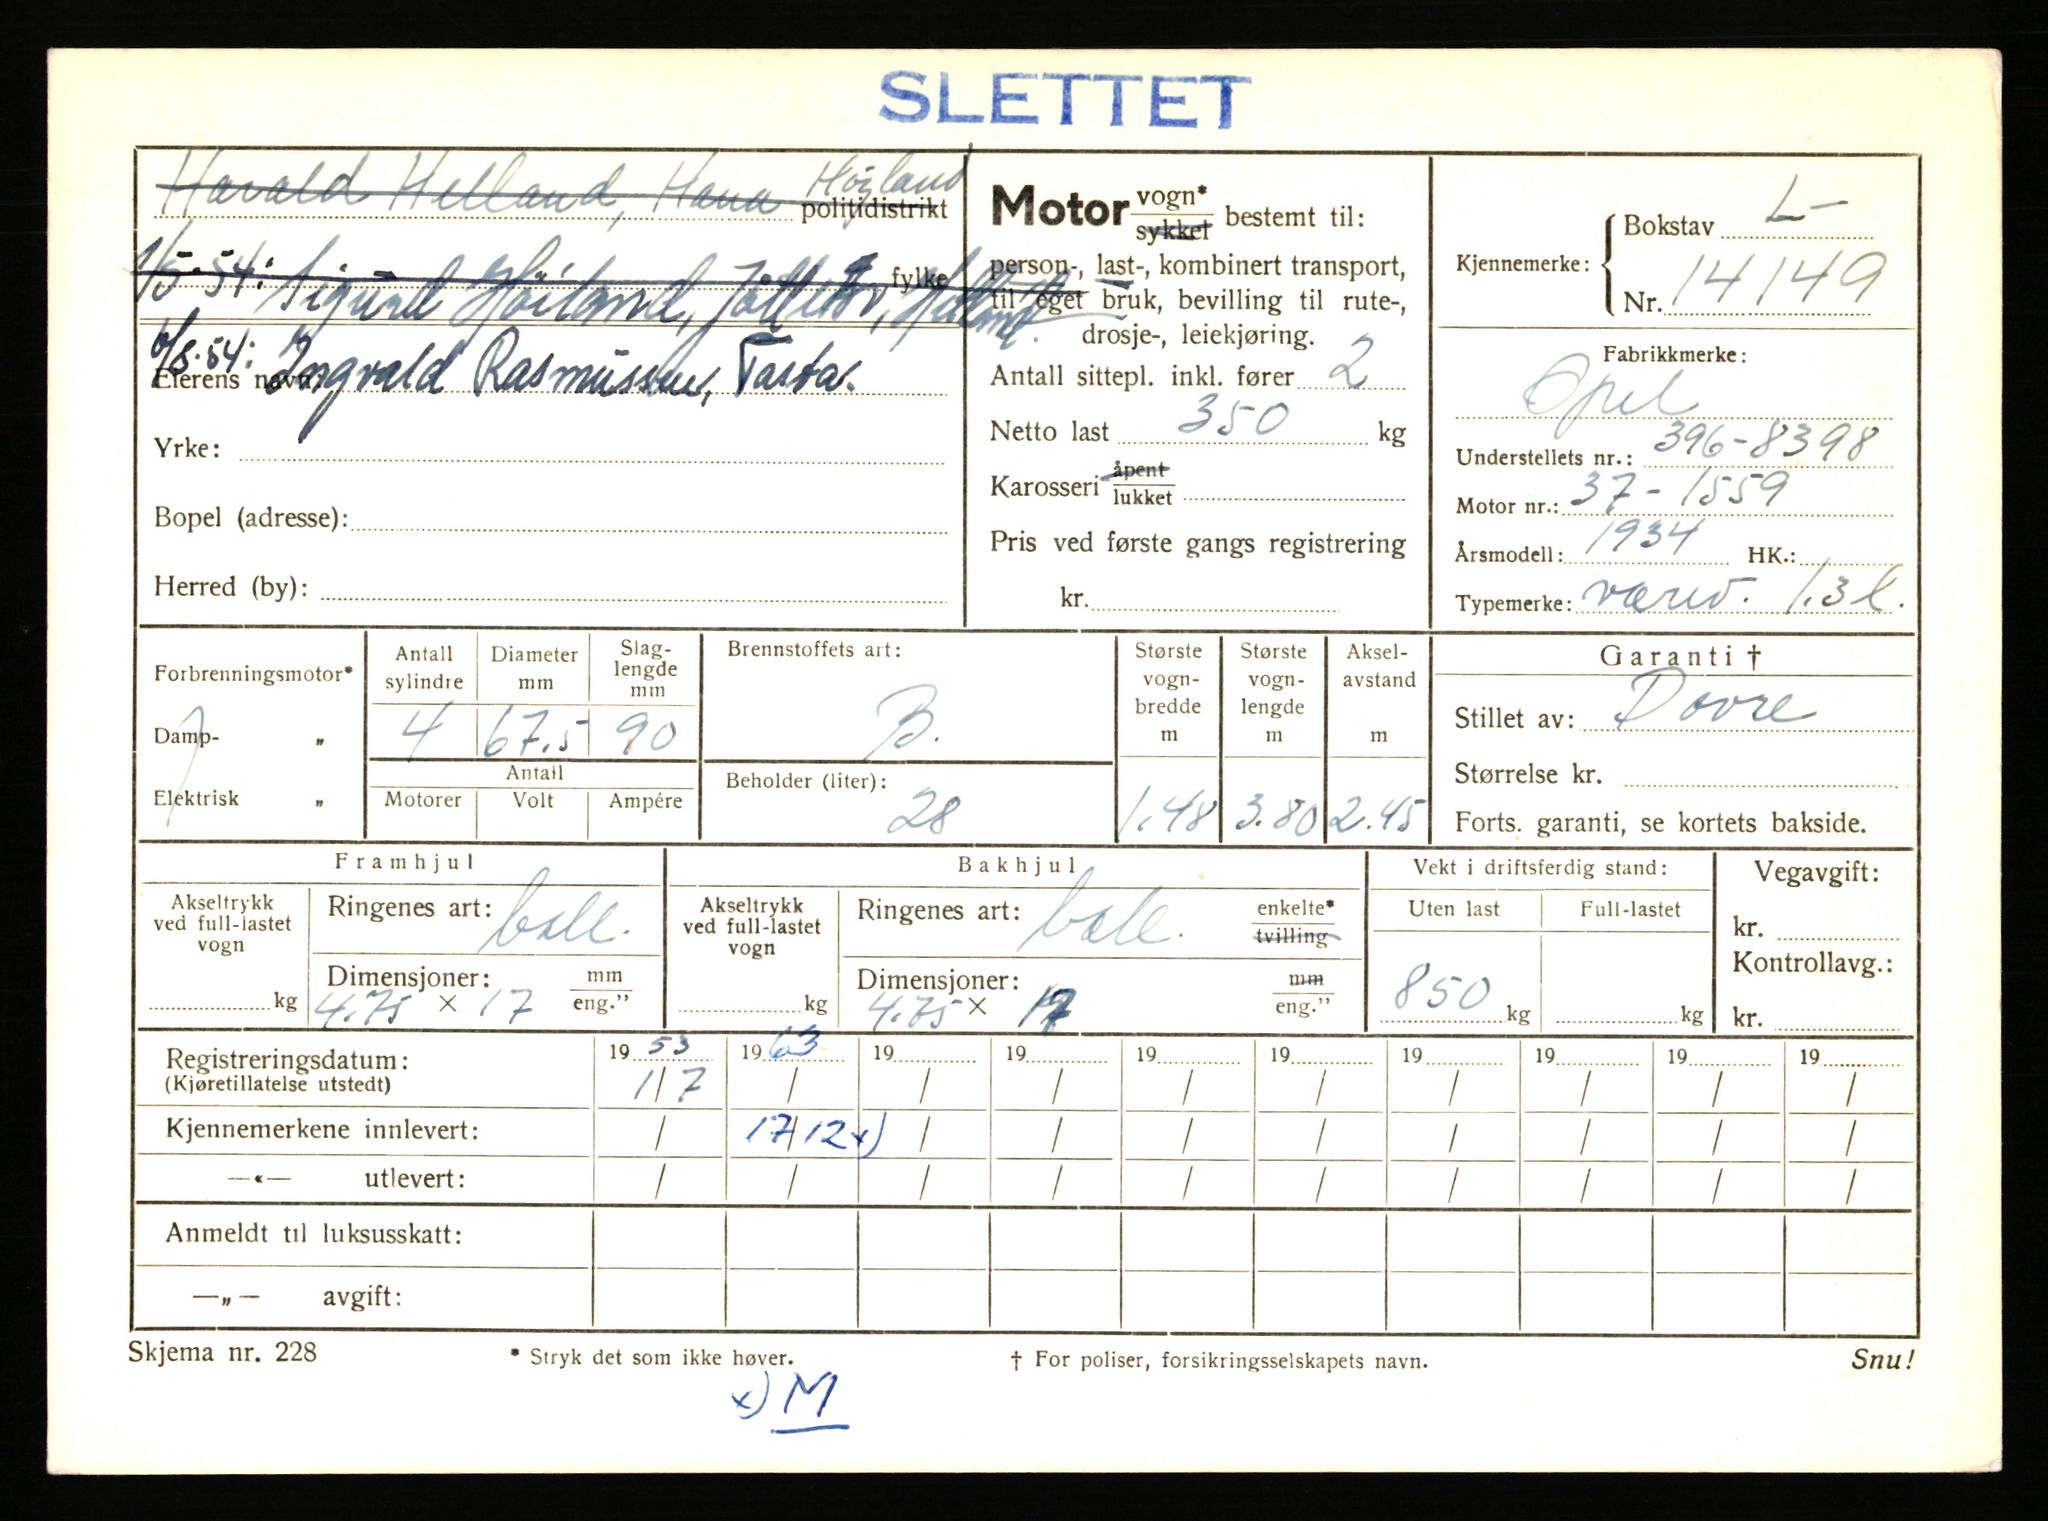 SLETTET
Harald Helland, Hana Højland
politidistrikt
1/5-54: Sigurd Höiland, fylke
6/8-54: Ingvald Rasmussen, Tasta.
Eierens navn:
Yrke:
Bopel (adresse):
Herred (by):
Motor vogn* / sykkel bestemt til:
person-, last-, kombinert transport,
til eget bruk, bevilling til rute-,
drosje-, leiekjøring.
Antall sittepl. inkl. fører 2
Netto last 350 kg
Karosseri åpent / lukket
Pris ved første gangs registrering
kr.
Kjennemerke: Bokstav L-
Nr. 14149
Fabrikkmerke:
Opel
Understellets nr.: 396-8398
Motor nr.: 37-1559
Årsmodell: 1934 HK.:
Typemerke: varev. 1,3 l.
Forbrenningsmotor*
Damp- „
Elektrisk „
Antall sylindre 4
Diameter mm 67.5
Slag-lengde mm 90
Antall
Motorer Volt Ampére
Brennstoffets art:
B.
Beholder (liter):
28
Største vogn-bredde m 1.48
Største vogn-lengde m 3.80
Aksel-avstand m 2.45
Garanti †
Stillet av: Dovre
Størrelse kr.
Forts. garanti, se kortets bakside.
Framhjul
Akseltrykk ved full-lastet vogn
kg
Ringenes art: ball.
Dimensjoner: mm / eng.”
4.75 × 17
Bakhjul
Akseltrykk ved full-lastet vogn
kg
Ringenes art: ball. enkelte* / tvilling
Dimensjoner: mm / eng.”
4.75 × 17
Vekt i driftsferdig stand:
Uten last Full-lastet
850 kg kg
Vegavgift:
kr.
Kontrollavg.:
kr.
Registreringsdatum: 19 53 19 63 19 19 19 19 19 19 19 19
(Kjøretillatelse utstedt) 1/7 / / / / / / / / /
Kjennemerkene innlevert: / 17/12 x) / / / / / / / /
—«— utlevert: / / / / / / / / / /
Anmeldt til luksusskatt:
—„— avgift:
Skjema nr. 228
* Stryk det som ikke høver.
† For poliser, forsikringsselskapets navn.
Snu!
x) M